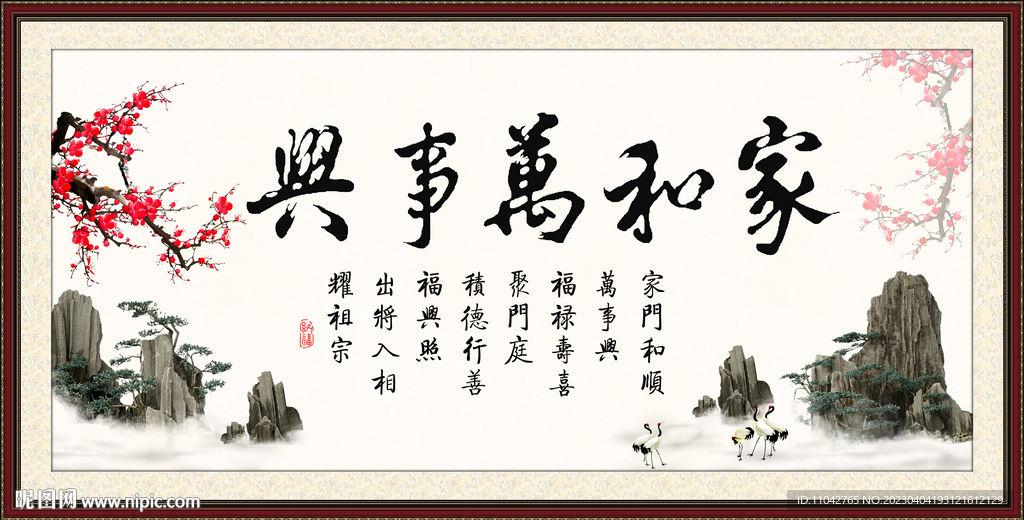 家和萬事興
家門和順
萬事興
福禄壽喜
聚門庭
積德行善
福興照
出將入相
耀祖宗
納福
昵图网 www.nipic.com
ID:11042765 NO.20230404193121612129